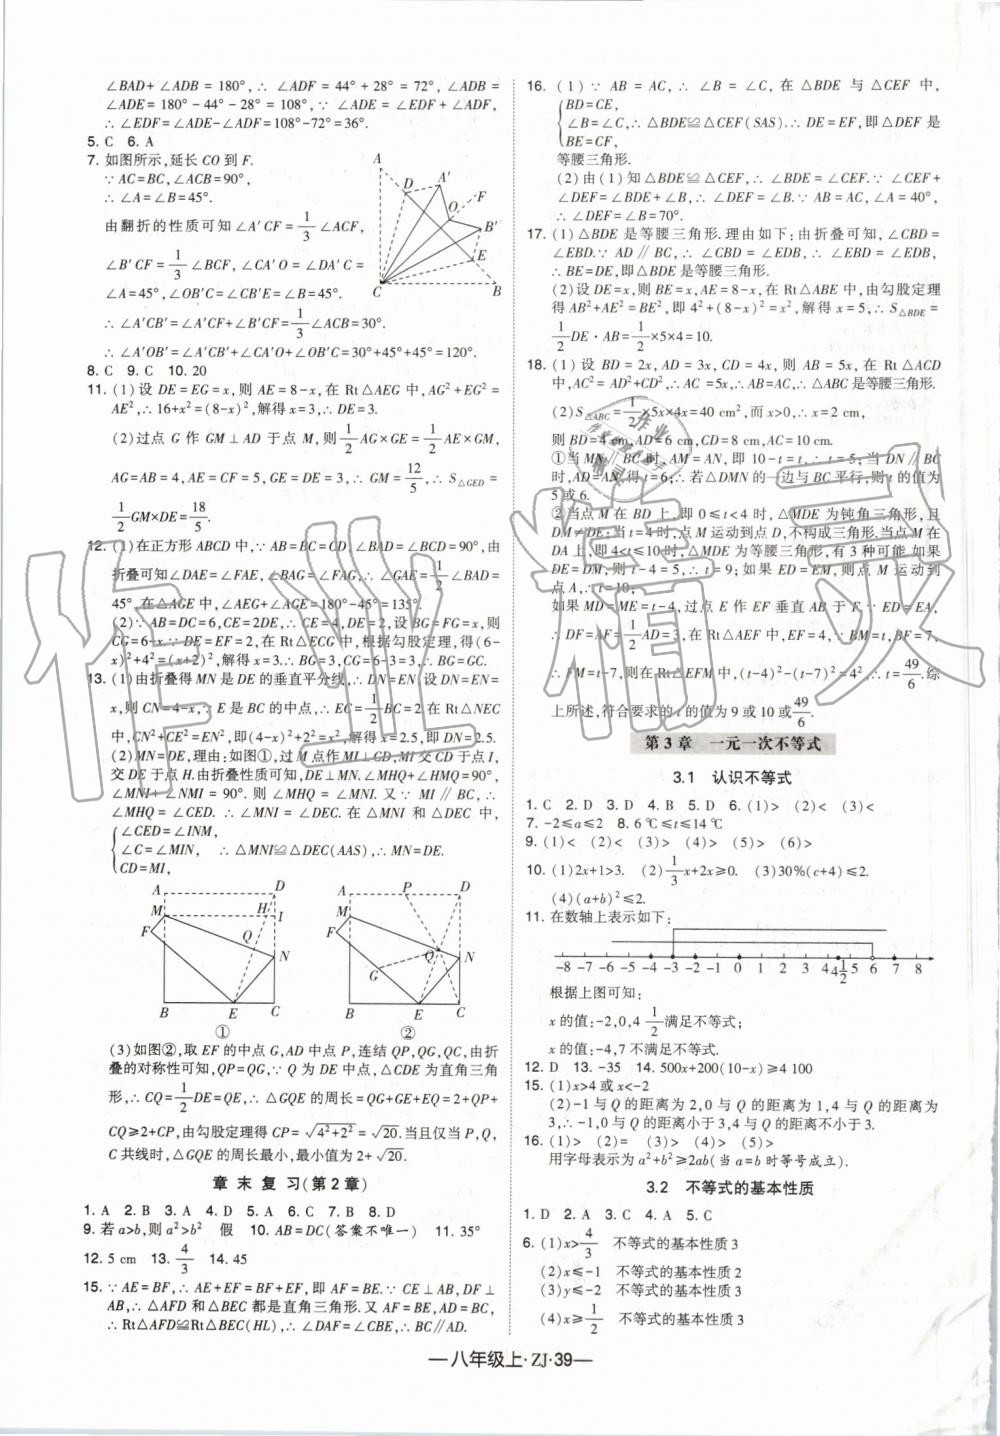 ∠BAD+∠ADB=180°,∴∠ADF=44°+28°=72°,∠ADB=
∠ADE=180°-44°-28°=108°,∵∠ADE=∠EDF+∠ADF,
∴∠EDF=∠ADE-∠ADF=108°-72°=36°.
5. C 6. A
7. 如图所示,延长CO到F.
∵AC=BC,∠ACB=90°,
∴∠A=∠B=45°.
由翻折的性质可知∠A′CF=1/3∠ACF,
∠B′CF=1/3∠BCF,∠CA′O=∠DA′C=
∠A=45°,∠OB′C=∠CB′E=∠B=45°.
∴∠A′CB′=∠A′CF+∠B′CF=1/3∠ACB=30°.
∴∠A′OB′=∠A′CB′+∠CA′O+∠OB′C=30°+45°+45°=120°.
A D A′ F O B′ E C B
8. C 9. C 10. 20
11. (1)设DE=EG=x,则AE=8-x,在Rt△AEG中,AG²+EG²=
AE²,∴16+x²=(8-x)²,解得x=3,∴DE=3.
(2)过点G作GM⊥AD于点M,则1/2AG×GE=1/2AE×GM,
AG=AB=4,AE=CF=5,GE=DE=3,∴GM=12/5,∴S△GED=
1/2GM×DE=18/5.
12. (1)在正方形ABCD中,∵AB=BC=CD,∠BAD=∠BCD=90°,由
折叠可知∠DAE=∠FAE,∠BAG=∠FAG,∴∠GAE=1/2∠BAD=
45°.在△AGE中,∠AGE+∠AEG=180°-45°=135°.
(2)∵AB=DC=6,CE=2DE,∴CE=4,DE=2,设BG=FG=x,则
CG=6-x.∵DE=EF=2,在Rt△ECG中,根据勾股定理,得(6-
x)²+4²=(x+2)²,解得x=3.∴BG=3,CG=6-3=3.∴BG=GC.
13. (1)由折叠得MN是DE的垂直平分线,∴DN=EN设DN=EN=
x,则CN=4-x,∵E是BC的中点,∴CE=1/2BC=2在Rt△NEC
中,CN²+CE²=EN²,即(4-x)²+2²=x²,解得x=2.5,即DN=2.5.
(2)MN=DE,理由:如图①,过点M作MI⊥CD,MI交CD于点I,
交DE于点H.由折叠性质可知,MN⊥DE.∠MHQ+∠HMQ=90°,
∠MNI+∠NMI=90°.则∠MHQ=∠MNI.又∵MI∥BC,∴
∠MHQ=∠CED.∴∠MNI=∠DEC.在△MNI和△DEC中,
∠CED=∠INM,
∠C=∠MIN,
CD=MI,
∴△MNI≌△DEC(AAS),∴MN=DE.
A D M H I F Q N B E C ①
A P D M F Q N G B E C ②
(3)如图②,取EF的中点G,AD中点P,连结QP,QG,QC,由折
叠的对称性可知,QP=QG,∵Q为DE中点,△CDE为直角三角
形,∴CQ=1/2DE=QE,∴△GQE的周长=QG+GE+QE=2+QP+
CQ≥2+CP,由勾股定理得CP=√4²+2²=√20.当且仅当P,Q,
C共线时,△GQE的周长最小,最小值为2+√20.
章末复习(第2章)
1. A 2. B 3. A 4. D 5. C 6. C 7. B 8. D
9. 若a>b,则a²>b² 假 10. AB=DC(答案不唯一) 11. 35°
12. 5 cm 13. 4/3 14. 45
15. ∵AE=BF,∴AE+EF=BF+EF,即AF=BE.∵CE⊥AB,DF⊥
AB,∴△AFD和△BEC都是直角三角形.又AF=BE,AD=BC,
∴Rt△AFD≌Rt△BEC(HL),∴∠DAF=∠CBE,∴BC∥AD.
16. (1)∵AB=AC,∴∠B=∠C,在△BDE与△CEF中,
BD=CE,
∠B=∠C,
BE=CF,
∴△BDE≌△CEF(SAS).∴DE=EF,即△DEF是
等腰三角形.
(2)由(1)知△BDE≌△CEF,∴∠BDE=∠CEF.∵∠CEF+
∠DEF=∠BDE+∠B,∴∠DEF=∠B.∵AB=AC,∠A=40°,
∴∠DEF=∠B=70°.
17. (1)△BDE是等腰三角形.理由如下:由折叠可知,∠CBD=
∠EBD.∵AD∥BC,∴∠CBD=∠EDB,∴∠EBD=∠EDB,
∴BE=DE,即△BDE是等腰三角形.
(2)设DE=x,则BE=x,AE=8-x,在Rt△ABE中,由勾股定理
得AB²+AE²=BE²,即4²+(8-x)²=x²,解得x=5,∴S△BDE=
1/2DE·AB=1/2×5×4=10.
18. (1)设BD=2x,AD=3x,CD=4x,则AB=5x,在Rt△ACD
中,AC²=AD²+CD²,∴AC=5x,∴AB=AC,∴△ABC是等腰三角形.
(2)S△ABC=1/2×5x×4x=40 cm²,而x>0,∴x=2 cm,
则BD=4 cm,AD=6 cm,CD=8 cm,AC=10 cm.
①当MN∥BC时,AM=AN,即10-t=t,∴t=5;当DN∥BC
时,AD=AN,得t=6;∴若△DMN的一边与BC平行,则t的值为
5或6.
②当点M在BD上,即0≤t<4时,△MDE为钝角三角形,且
DM≠DE;当t=4时,点M运动到点D,不构成三角形.当点M在
DA上,即4<t≤10时,△MDE为等腰三角形,有3种可能.如果
DE=DM,则t-4=5,∴t=9;如果ED=EM,则点M运动到
点A,∴t=10,
如果MD=ME=t-4,过点E作EF垂直AB于F,∵ED=EA,
∴DF=AF=1/2AD=3,在Rt△AEF中,EF=4,∵BM=t,BF=7,
∴FM=t-7,则在Rt△EFM中,(t-4)²-(t-7)²=4²,∴t=49/6.综
上所述,符合要求的t的值为9或10或49/6.
第3章 一元一次不等式
3.1 认识不等式
1. C 2. D 3. D 4. B 5. D 6. (1)> (2)< (3)<
7. -2≤a≤2 8. 6℃≤t≤14℃
9. (1)< (2)< (3)> (4)> (5)> (6)>
10. (1)2x+1>3. (2)1/3x+2x≥0. (3)30%(c+4)≤2.
(4)(a+b)²≤2.
11. 在数轴上表示如下:
-8 -7 -6 -5 -4 -3 -2 -1 0 1 2 3 4 4 1/2 5 6 7 8
根据上图可知:
x的值:-2,0,4 1/2满足不等式;
x的值:-4,7不满足不等式.
12. D 13. -35 14. 500x+200(10-x)≥4 100
15. (1)x>4或x<-2
(2)-1与Q的距离为2,0与Q的距离为1,4与Q的距离为
3,∴-1,0与Q的距离小于3,4与Q的距离不小于3.
16. (1)> (2)= (3)> (4)> (5)>
用字母表示为a²+b²≥2ab(当a=b时等号成立).
3.2 不等式的基本性质
1. D 2. A 3. A 4. C 5. C
6. (1)x>4/3 不等式的基本性质3
(2)x≤-1 不等式的基本性质2
(3)y≤-2 不等式的基本性质3
(4)x≥1/2 不等式的基本性质3
—八年级上·ZJ·39—
作业精灵